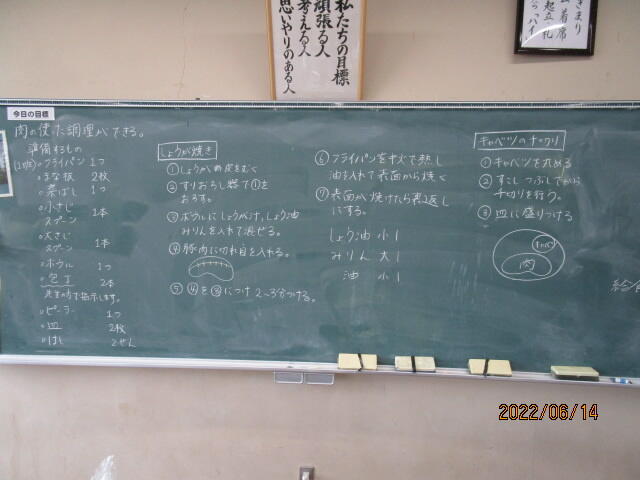 私たちの目標
頑張る人
考える人
思いやりのある人
きまり
着席
起立 礼
今日の目標
肉の使った調理ができる。
準備するもの
(1班)
○フライパン 1つ
○まな板 2枚
○菜ばし 1つ
○小さじ
スプーン 1本
○大さじ
スプーン 1本
○ボウル 1つ
○包丁 2本
先生の時で指示します。
○ピーラー 1つ
○皿 2枚
○はし 2ぜん
しょうが焼き
①しょうがの皮をむく
②すりおろし器で①を
おろす。
③ボウルにしょうが汁、しょう油
みりんを入れて混ぜる。
④豚肉に切れ目を入れる。
⑤④を③につけ2〜3分つける。
⑥フライパンを中火で熱し
油を入れて表面から焼く
⑦表面が焼けたら裏返し
にする。
しょう油 小1
みりん 大1
油 小1
キャベツの千切り
①キャベツを丸める
②すこしつぶしてから
千切りを行う。
③皿に盛りつける
キャベツ
肉
給食
2022/06/14